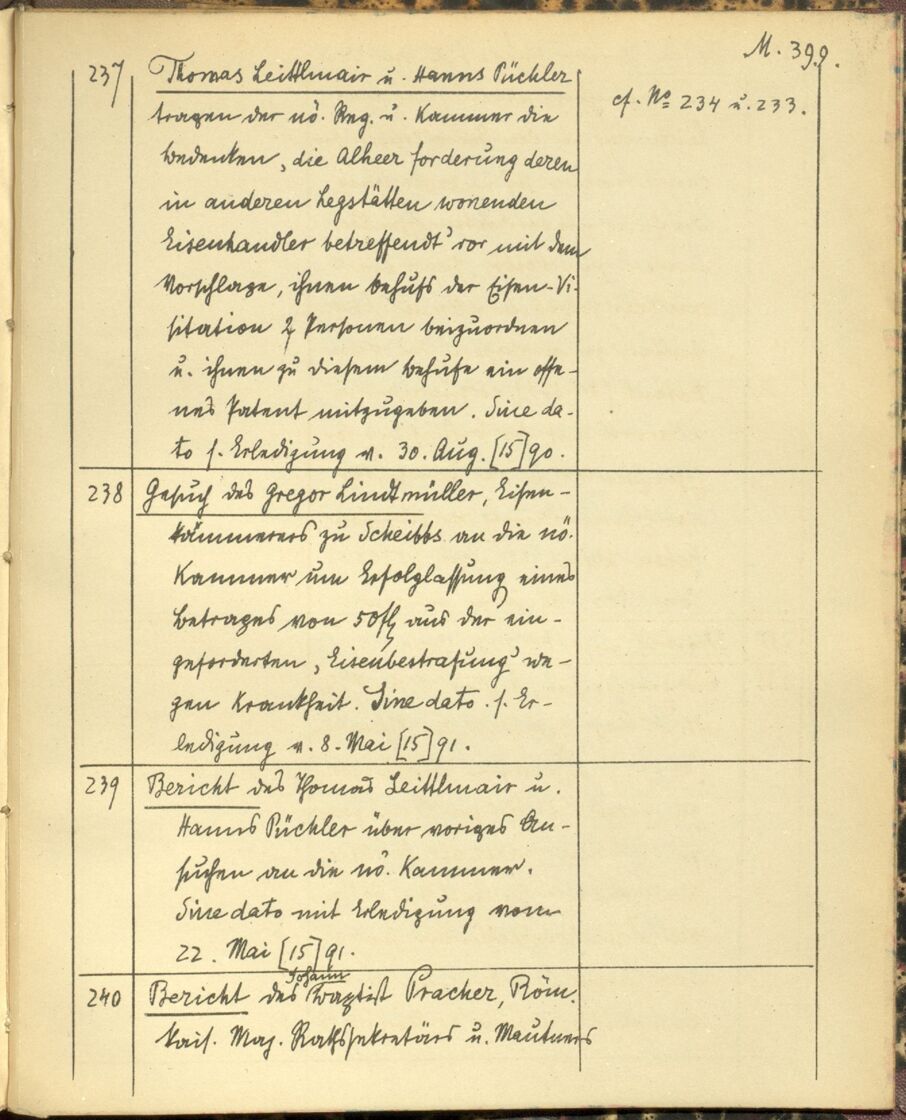 M. 399.
237 Thomas Leittlmair u. Hanns Püchler
cf. No 234 u. 233.
tragen der nö. Reg. u. Kammer die
Bedenken, die Alheer forderung deren
in anderen Legstätten wonenden
Eisenhandler betreffendt' vor mit dem
Vorschlage, ihnen behufs der Eisen-Vi-
sitation 2 Personen beizuordnen
u. ihnen zu diesem Behufe ein offe-
nes Patent mitzugeben. Sine da-
to s. Erledigung v. 30. Aug. [15]90.
238 Gesuch des Gregor Lindtmüller, Eisen-
kämmerers zu Scheibbs an die nö.
Kammer um Erfolglassung eines
Betrages von 50 fl aus der ein-
geforderten ,Eisenbestrafung' we-
gen Krankheit. Sine dato. s. Er-
ledigung v. 8. Mai [15]91.
239 Bericht des Thomas Leittlmair u.
Hanns Püchler über voriges An-
suchen an die nö. Kammer.
Sine dato mit Erledigung vom
22. Mai [15]91.
240 Bericht des Johann Baptist Pracher, Röm.
kais. Maj. Rathssekretärs u. Mautners